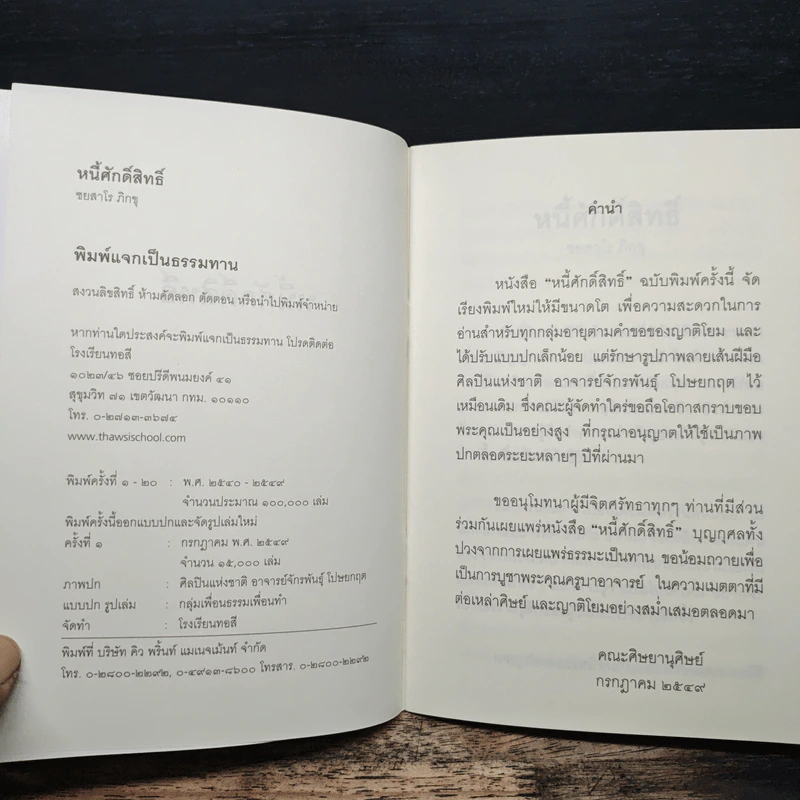 หนี้ศักดิ์สิทธิ์
ชยสาโร ภิกขุ
พิมพ์แจกเป็นธรรมทาน
สงวนลิขสิทธิ์ ห้ามคัดลอก ตัดตอน หรือนำไปพิมพ์จำหน่าย
หากท่านใดประสงค์จะพิมพ์แจกเป็นธรรมทาน โปรดติดต่อ
โรงเรียนทอสี
๑๐๒๓/๔๖ ซอยปรีดีพนมยงค์ ๔๑
สุขุมวิท ๗๑ เขตวัฒนา กทม. ๑๐๑๑๐
โทร. ๐-๒๗๑๓-๓๖๗๔
www.thawsischool.com
พิมพ์ครั้งที่ ๑ - ๒๐ : พ.ศ. ๒๕๔๐ - ๒๕๔๙
จำนวนประมาณ ๑๐๐,๐๐๐ เล่ม
พิมพ์ครั้งนี้ออกแบบปกและจัดรูปเล่มใหม่
ครั้งที่ ๑ : กรกฎาคม พ.ศ. ๒๕๔๙
จำนวน ๑๕,๐๐๐ เล่ม
ภาพปก : ศิลปินแห่งชาติ อาจารย์จักรพันธุ์ โปษยกฤต
แบบปก รูปเล่ม : กลุ่มเพื่อนธรรมเพื่อนทำ
จัดทำ : โรงเรียนทอสี
พิมพ์ที่ บริษัท คิว พริ้นท์ แมเนจเม้นท์ จำกัด
โทร. ๐-๒๘๐๐-๒๒๙๒, ๐-๔๙๑๓-๘๖๐๐ โทรสาร. ๐-๒๘๐๐-๒๒๙๒
คำนำ
หนังสือ "หนี้ศักดิ์สิทธิ์" ฉบับพิมพ์ครั้งนี้ จัด
เรียงพิมพ์ใหม่ให้มีขนาดโต เพื่อความสะดวกในการ
อ่านสำหรับทุกกลุ่มอายุตามคำขอของญาติโยม และ
ได้ปรับแบบปกเล็กน้อย แต่รักษารูปภาพลายเส้นฝีมือ
ศิลปินแห่งชาติ อาจารย์จักรพันธุ์ โปษยกฤต ไว้
เหมือนเดิม ซึ่งคณะผู้จัดทำใคร่ขอถือโอกาสกราบขอบ
พระคุณเป็นอย่างสูง ที่กรุณาอนุญาตให้ใช้เป็นภาพ
ปกตลอดระยะหลายๆ ปีที่ผ่านมา
ขออนุโมทนาผู้มีจิตศรัทธาทุกๆ ท่านที่มีส่วน
ร่วมกันเผยแพร่หนังสือ "หนี้ศักดิ์สิทธิ์" บุญกุศลทั้ง
ปวงจากการเผยแพร่ธรรมะเป็นทาน ขอน้อมถวายเพื่อ
เป็นการบูชาพระคุณครูบาอาจารย์ ในความเมตตาที่มี
ต่อเหล่าศิษย์ และญาติโยมอย่างสม่ำเสมอตลอดมา
คณะศิษยานุศิษย์
กรกฎาคม ๒๕๔๙